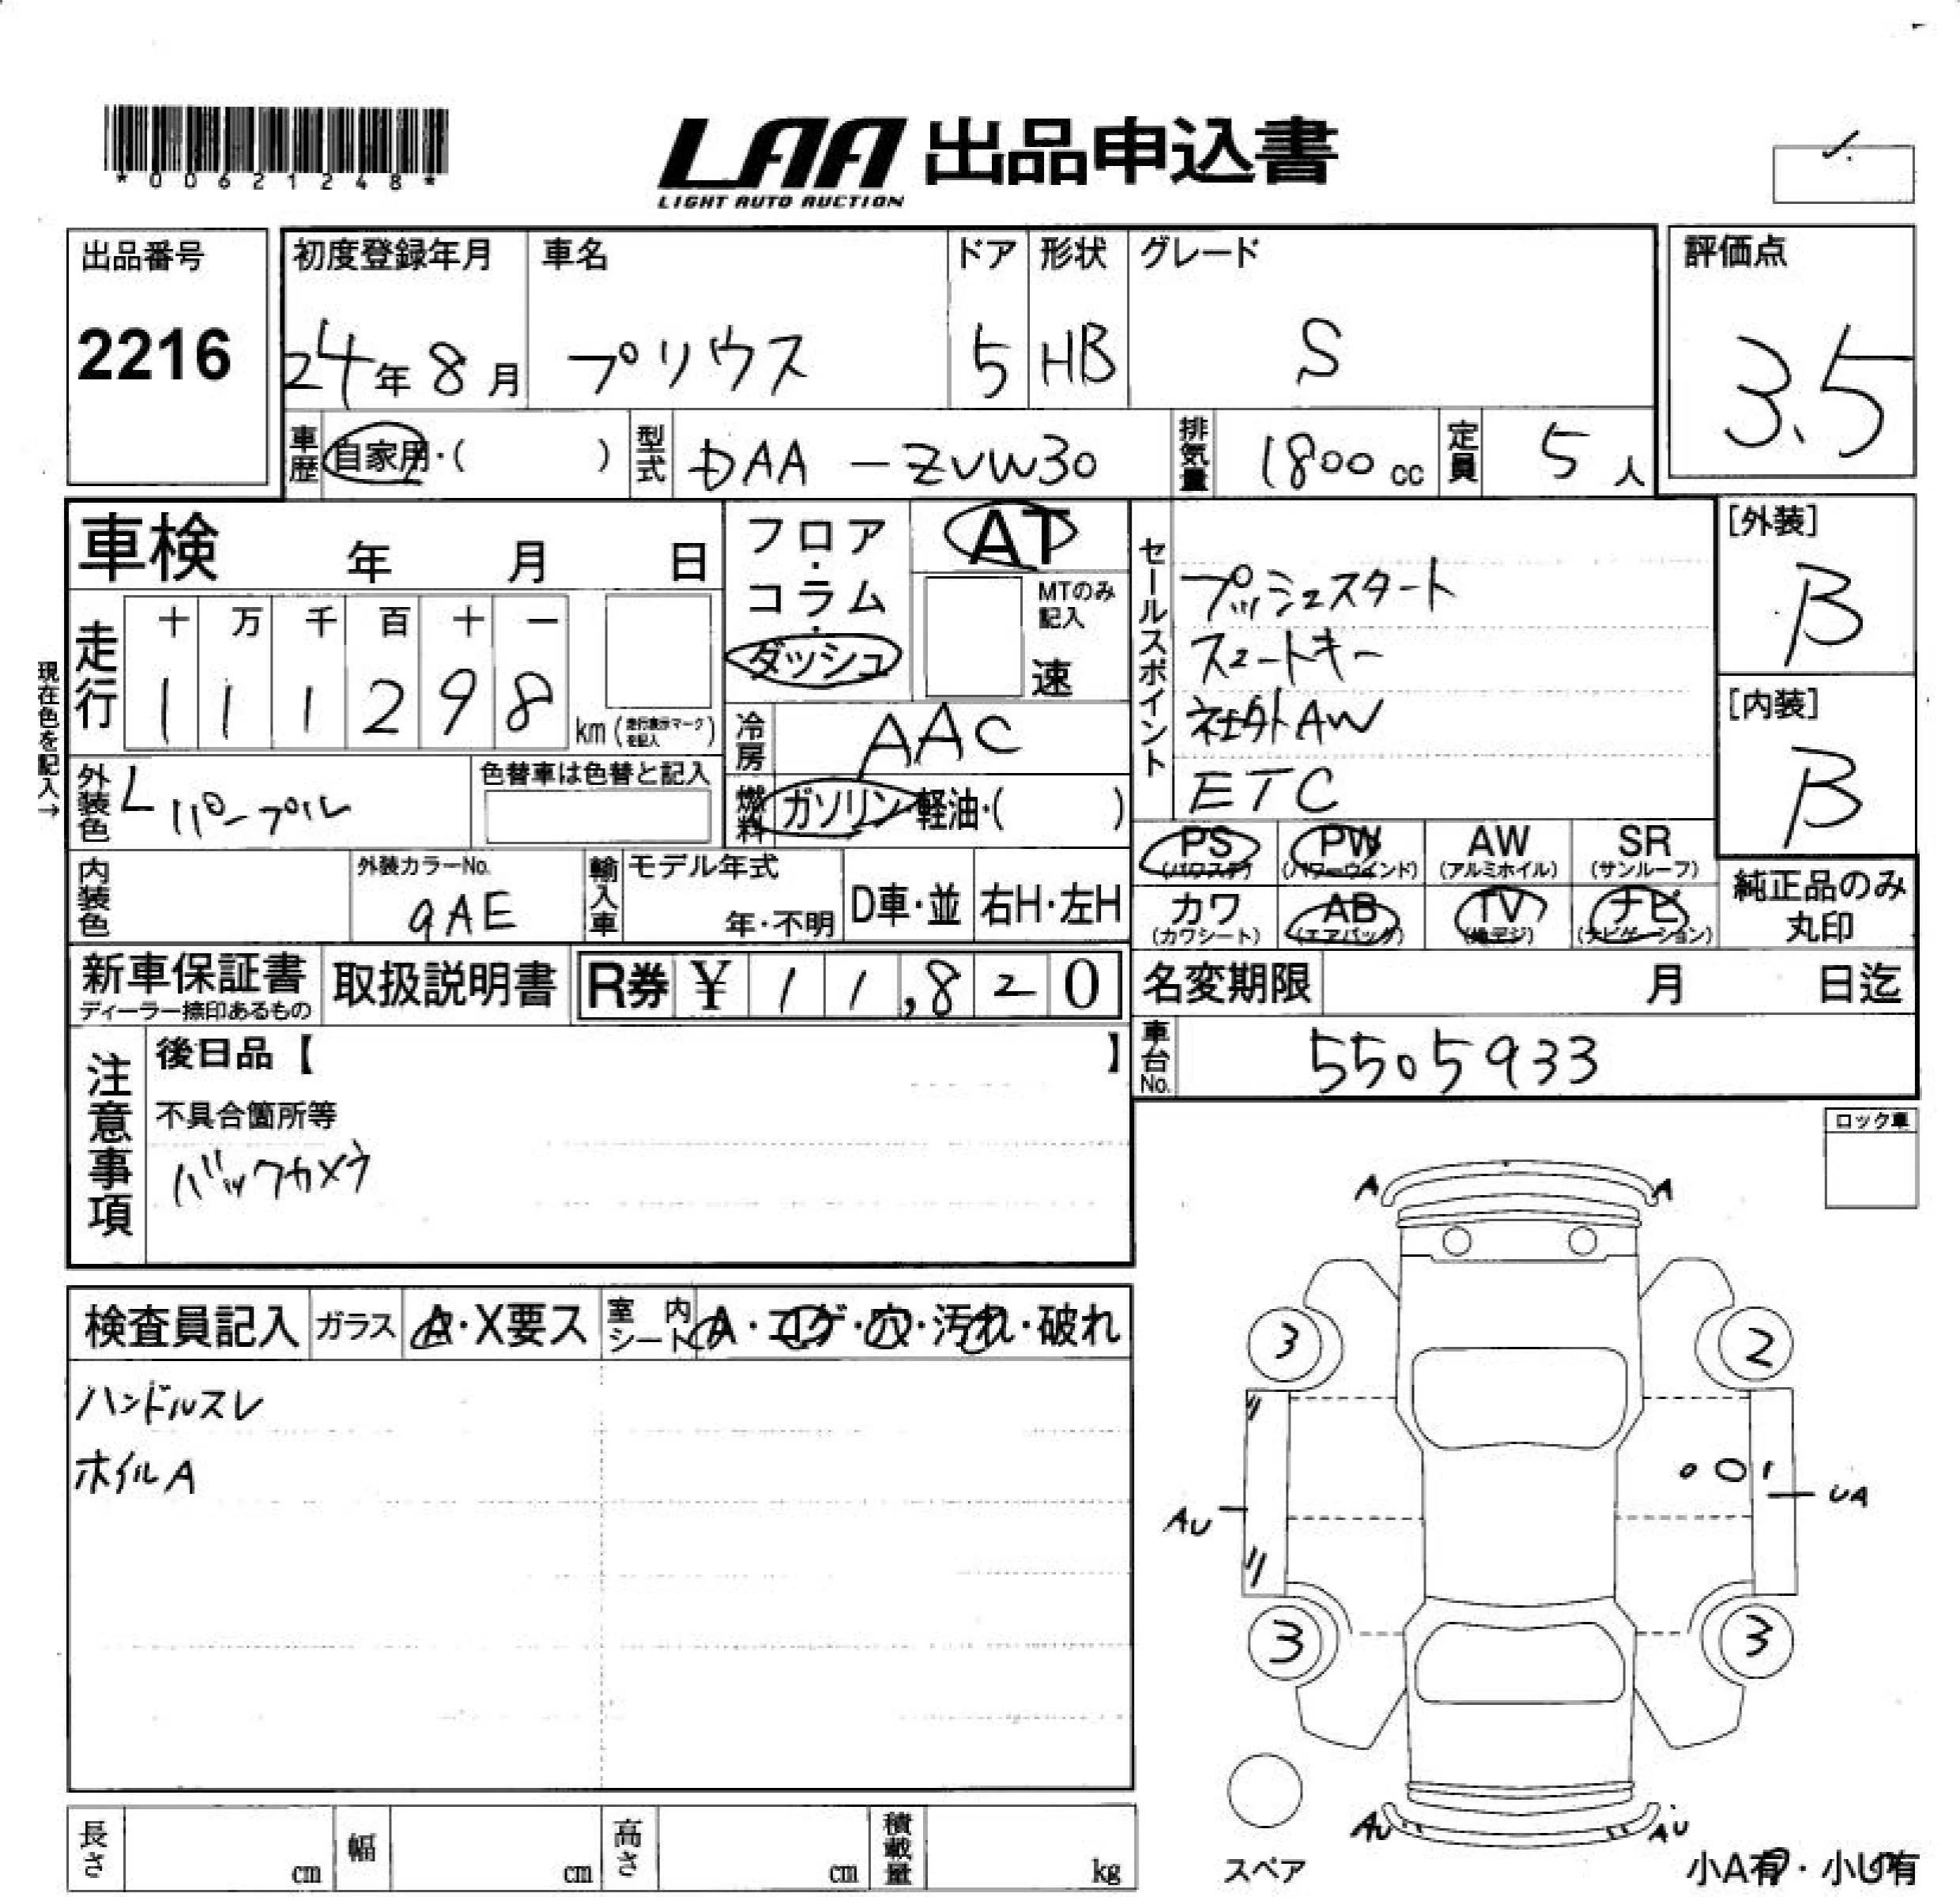 *00621248*
LAA 出品申込書
LIGHT AUTO AUCTION
出品番号
2216
初度登録年月
24年8月
車名
プリウス
ドア
5
形状
HB
グレード
S
評価点
3.5
車歴
自家用・( )
型式
DAA-ZVW30
排気量
1800cc
定員
5人
車検 年 月 日
フロア・コラム・ダッシュ
AT
MTのみ記入
速
現在色を記入→
走行
十 万 千 百 十 一
1 1 1 2 9 8
km (走行表示マークを記入)
冷房
AAC
燃料
ガソリン・軽油・( )
外装色
Lパープル
色替車は色替と記入
内装色
外装カラーNo.
9AE
輸入車
モデル年式
年・不明
D車・並
右H・左H
セールスポイント
プッシュスタート
スマートキー
社外AW
ETC
PS
(パワステ)
PW
(パワーウインド)
AW
(アルミホイル)
SR
(サンルーフ)
カワ
(カワシート)
AB
(エアバッグ)
TV
(地デジ)
ナビ
(ナビゲーション)
[外装]
B
[内装]
B
純正品のみ
丸印
新車保証書
ディーラー捺印あるもの
取扱説明書
R券 ¥ 11,820
名変期限 月 日迄
車台No.
5505933
注意事項
後日品【 】
不具合箇所等
バックカメラ
ロック車
検査員記入
ガラス
A・X要ス
室内
シート
A・コゲ・穴・汚れ・破れ
ハンドルスレ
ホイルA
A A
3 2
AU UA
3 3
AU AU
スペア
小A有・小U有
長さ cm
幅 cm
高さ cm
積載量 kg